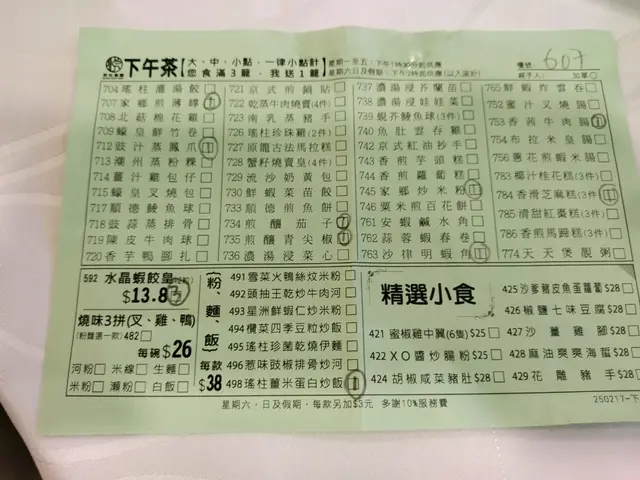 下午茶
大、中、小點，一律小點計
您食滿3籠，我送1籠
星期一至五：下午1時30分起供應
檯號: 607
經手人:
加單○
704 瑤柱灌湯餃
707 家鄉煎薄罉 1
708 北菇棉花雞
709 蠔皇鮮竹卷
712 豉汁蒸鳳爪 1
713 潮州蒸粉粿
714 薑汁雞包仔
715 蠔皇叉燒包
717 順德鯪魚球
718 豉蒜蒸排骨
719 陳皮牛肉球
720 香芋鴨腳扎
721 京式煎鍋貼
722 乾蒸牛肉燒賣(4件)
723 南乳蒸豬手
726 瑤柱珍珠雞(2件)
727 原籠古法馬拉糕
728 蟹籽燒賣皇(4件)
729 流沙奶黃包
730 鮮蝦菜苗餃
733 順德煎魚餅
734 煎釀茄子 1
735 煎釀青尖椒 1
736 濃湯浸菜心
737 濃湯浸芥蘭苗
738 濃湯浸娃娃菜
739 蜆芥鯪魚球(3件)
740 魚肚雲吞雞
742 京式紅油抄手
743 香煎芋頭糕
744 香煎蘿蔔糕
745 家鄉炒米粉 1
746 粟米煎百花餅
751 安蝦鹹水角
762 蒜蓉蝦春卷
763 沙律明蝦角 1
765 鮮蝦炸雲吞
752 蜜汁叉燒腸
753 香茜牛肉腸 1
754 布拉米皇腸
756 蔥花煎蝦米腸
783 椰汁桂花糕(3件)
784 香滑芝麻糕(3件) 1
785 清甜紅棗糕(3件)
786 香煎馬蹄糕(3件)
774 天天煲靚粥
592 水晶蝦餃皇
$13.8
燒味3拼(叉、雞、鴨)
(粉麵選一款) 482
每碗 $26
河粉 米線 生麵
米粉 瀨粉 白飯
(粉、麵、飯)
每款
$38
491 雪菜火鴨絲炆米粉
492 頭抽王乾炒牛肉河
493 星洲鮮蝦仁炒米粉
494 欖菜四季豆粒炒飯
495 瑤柱珍菌乾燒伊麵
496 惹味豉椒排骨炒河
498 瑤柱薑米蛋白炒飯 1
精選小食
421 蜜椒雞中翼(6隻) $25
422 XO醬炒腸粉 $25
424 胡椒咸菜豬肚 $28
425 沙爹豬皮魚蛋蘿蔔 $28
426 椒鹽七味豆腐 $28
427 沙薑雞腳 $28
428 麻油爽爽海蜇 $28
429 花雕豬手 $28
星期六，日及假期，每款另加$3元 多謝10%服務費
250217-下